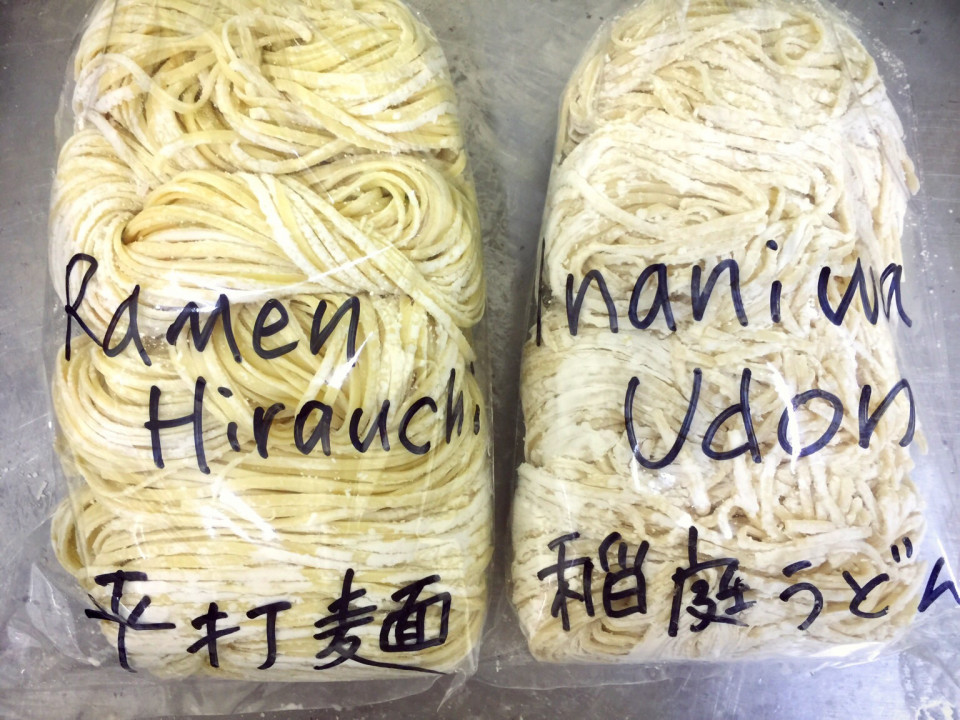 Ramen
Hirauchi
平打麺
Inaniwa
Udon
稲庭うどん